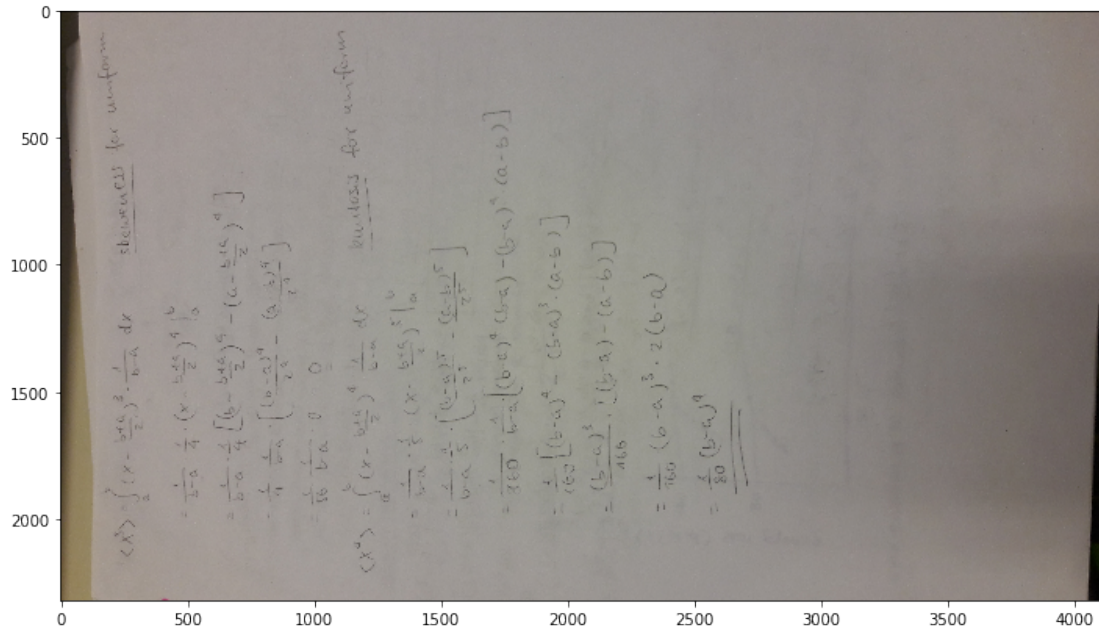 ⟨x³⟩ = ∫ₐᵇ (x - (b+a)/2)³ · 1/(b-a) dx skewness for uniform
= 1/(b-a) · 1/4 · (x - (b+a)/2)⁴ |ₐᵇ
= 1/(b-a) · 1/4 [(b - (b+a)/2)⁴ - (a - (b+a)/2)⁴]
= 1/4 · 1/(b-a) · [(b-a)⁴/2⁴ - (a-b)⁴/2⁴]
· 1/(b-a) · 0 = 0
⟨x⁴⟩ = ∫ₐᵇ (x - (b+a)/2)⁴ · 1/(b-a) dx kurtosis for uniform
= 1/(b-a) · 1/5 · (x - (b+a)/2)⁵ |ₐᵇ
= 1/(b-a) · 1/5 · [(b-a)⁵/2⁵ - (a-b)⁵/2⁵]
= 1/160 · 1/(b-a) [(b-a)⁴ (b-a) - (b-a)⁴ (a-b)]
= 1/160 [(b-a)⁴ - (b-a)³ · (a-b)]
= (b-a)³/160 · [(b-a) - (a-b)]
= 1/160 (b-a)³ · 2(b-a)
= 1/80 (b-a)⁴
0
500
1000
1500
2000
0 500 1000 1500 2000 2500 3000 3500 4000